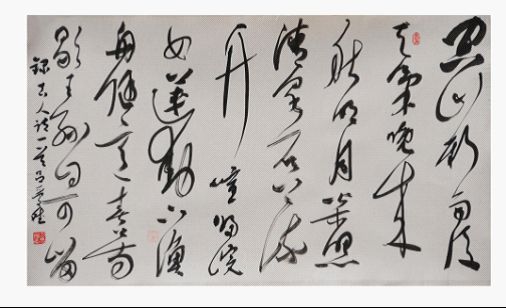 空山新雨後
天氣晚来
秋明月松間照
清泉石上流
竹喧歸浣
女蓮動下漁
舟隨意春芳
歇王孫自可留
録古人詩一首